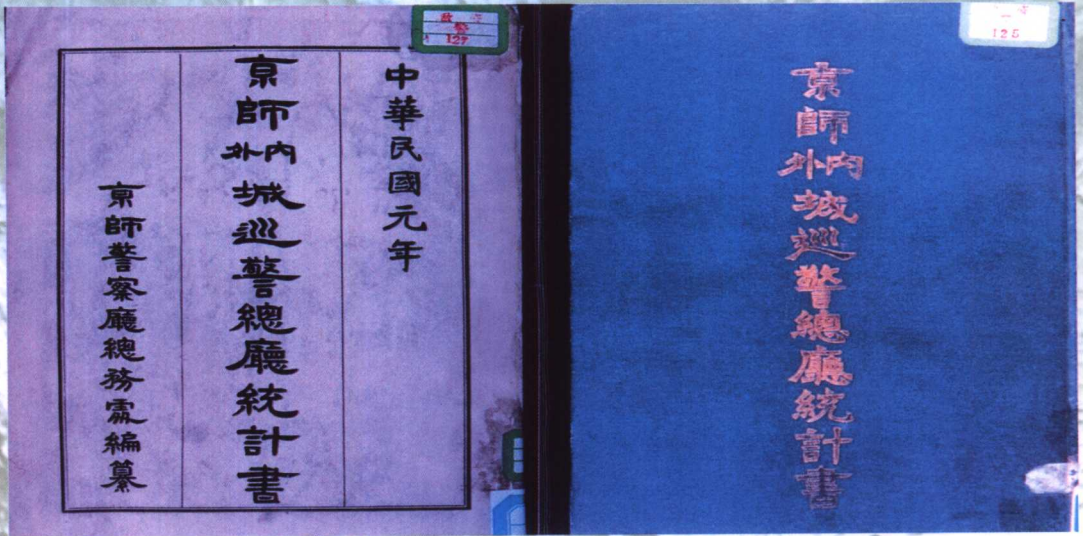 中華民國元年
京師內外城巡警總廳統計書
京師警察廳總務處編纂
127
京師內外城巡警總廳統計書
125